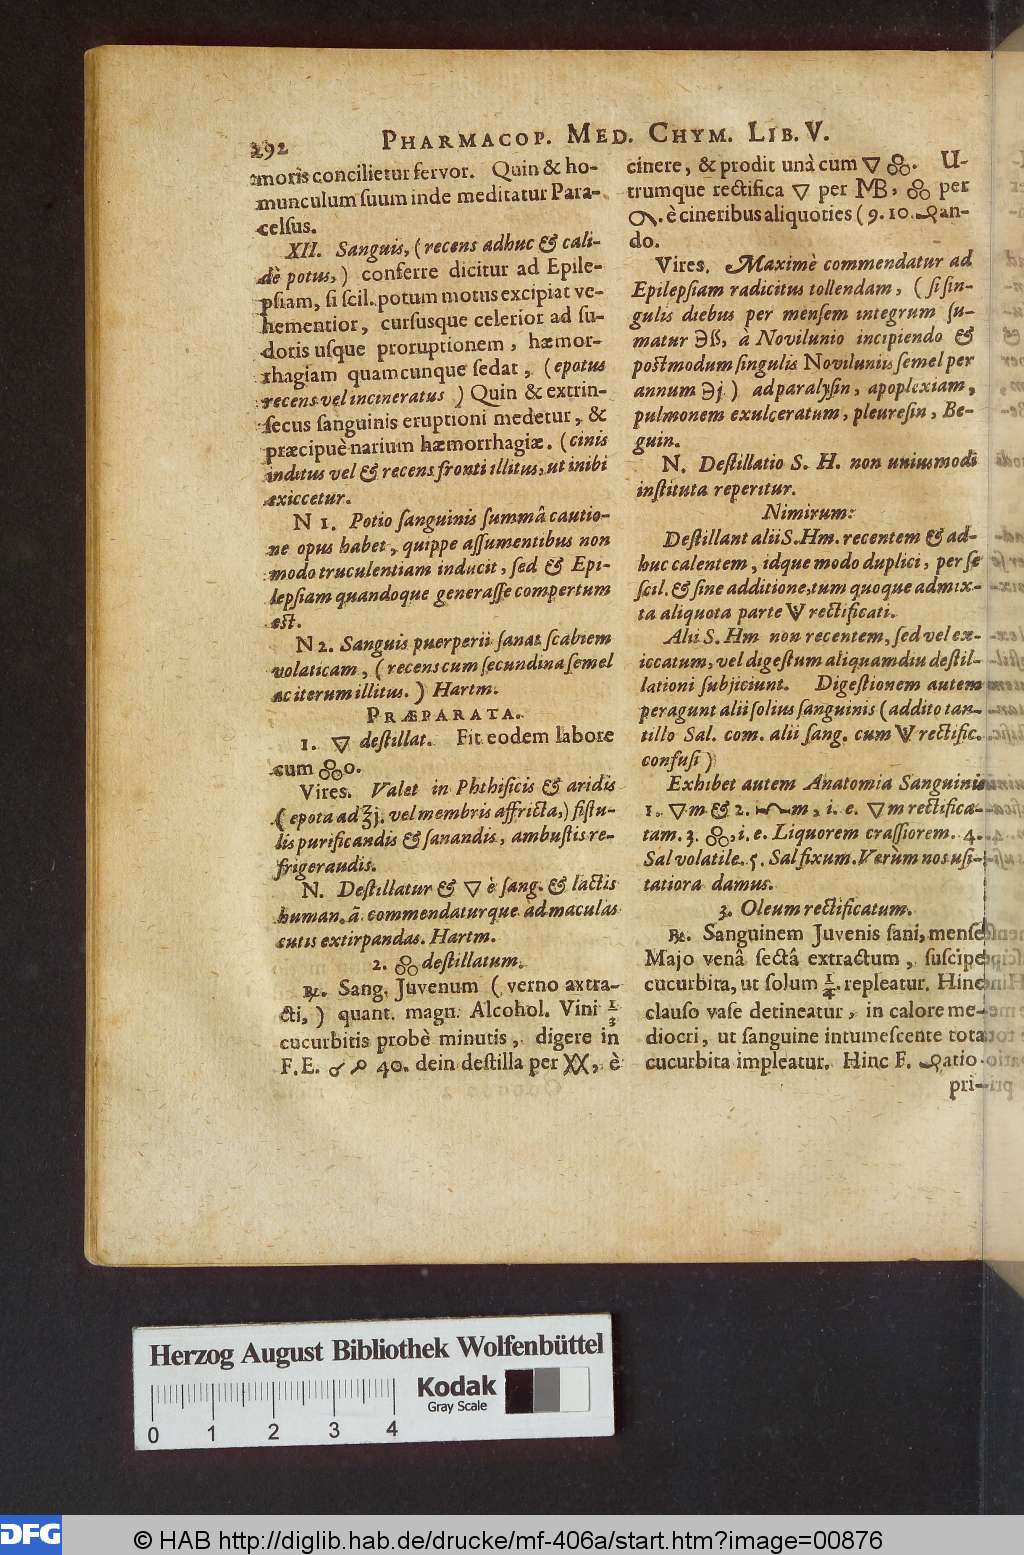 292 PHARMACOP. MED. CHYM. LIB. V.
amoris concilietur fervor. Quin & ho-
munculum suum inde meditatur Para-
celsus.
XII. Sanguis, (recens adhuc & cali-
dè potus,) conferre dicitur ad Epile-
psiam, si scil. potum motus excipiat ve-
hementior, cursusque celerior ad su-
doris usque proruptionem, hæmor-
rhagiam quamcunque sedat, (epotus
recens vel incineratus ) Quin & extrin-
secus sanguinis eruptioni medetur, &
præcipuè narium hæmorrhagiæ. (cinis
inditus vel & recens fronti illitus, ut inibi
exiccetur.
N 1. Potio sanguinis summâ cautio-
ne opus habet, quippe assumentibus non
modo truculentiam inducit, sed & Epi-
lepsiam quandoque generasse compertum
est.
N 2. Sanguis puerperii sanat scabiem
volaticam, (recens cum secundina semel
ac iterum illitus. ) Hartm.
PRÆPARATA.
1. 🜄 destillat. Fit eodem labore
cum ꝏo.
Vires. Valet in Phthisicis & aridis
( epota ad ℥j. vel membris affricta,) fistu-
lis purificandis & sanandis, ambustis re-
frigerandis.
N. Destillatur & 🜄 è sang. & lactis
human. ã commendaturque ad maculas
cutis extirpandas. Hartm.
2. destillatum.
℞. Sang. Juvenum ( verno axtra-
cti, ) quant. magn. Alcohol. Vini 1/3
cucurbitis probè minutis, digere in
F. E. 40. dein destilla per XX, è
cinere, & prodit unà cum 🜄 . U-
trumque rectifica 🜄 per MB, per
. è cineribus aliquoties ( 9. 10. an-
do.
Vires. Maximè commendatur ad
Epilepsiam radicitus tollendam, ( si sin-
gulis diebus per mensem integrum su-
matur ℈ß, à Novilunio incipiendo &
postmodum singulis Noviluniis semel per
annum ℈j ) ad paralysin, apoplexiam,
pulmonem exulceratum, pleuresin, Be-
guin.
N. Destillatio S. H. non uniusmodi
instituta reperitur.
Nimirum:
Destillant alii S. Hm. recentem & ad-
huc calentem, idque modo duplici, per se
scil. & sine additione, tum quoque admix-
ta aliquota parte rectificati.
Alii S. Hm non recentem, sed vel ex-
iccatum, vel digestum aliquamdiu destil-
lationi subjiciunt. Digestionem autem
peragunt alii solius sanguinis (addito tan-
tillo Sal. com. alii sang. cum rectific.
confusi )
Exhibet autem Anatomia Sanguinis
1. 🜄m & 2. m, i. e. 🜄m rectifica-
tam. 3. , i. e. Liquorem crassiorem. 4.
Sal volatile. 5. Sal fixum. Verùm nos usi-
tatiora damus.
3. Oleum rectificatum.
℞. Sanguinem Juvenis sani, mense
Majo venâ sectâ extractum, suscipe
cucurbita, ut solum 1/4. repleatur. Hinc
clauso vase detineatur, in calore me-
diocri, ut sanguine intumescente tota
cucurbita impleatur. Hinc F. atio
pri-
Herzog August Bibliothek Wolfenbüttel
0 1 2 3 4
Kodak
Gray Scale
DFG © HAB http://diglib.hab.de/drucke/mf-406a/start.htm?image=00876